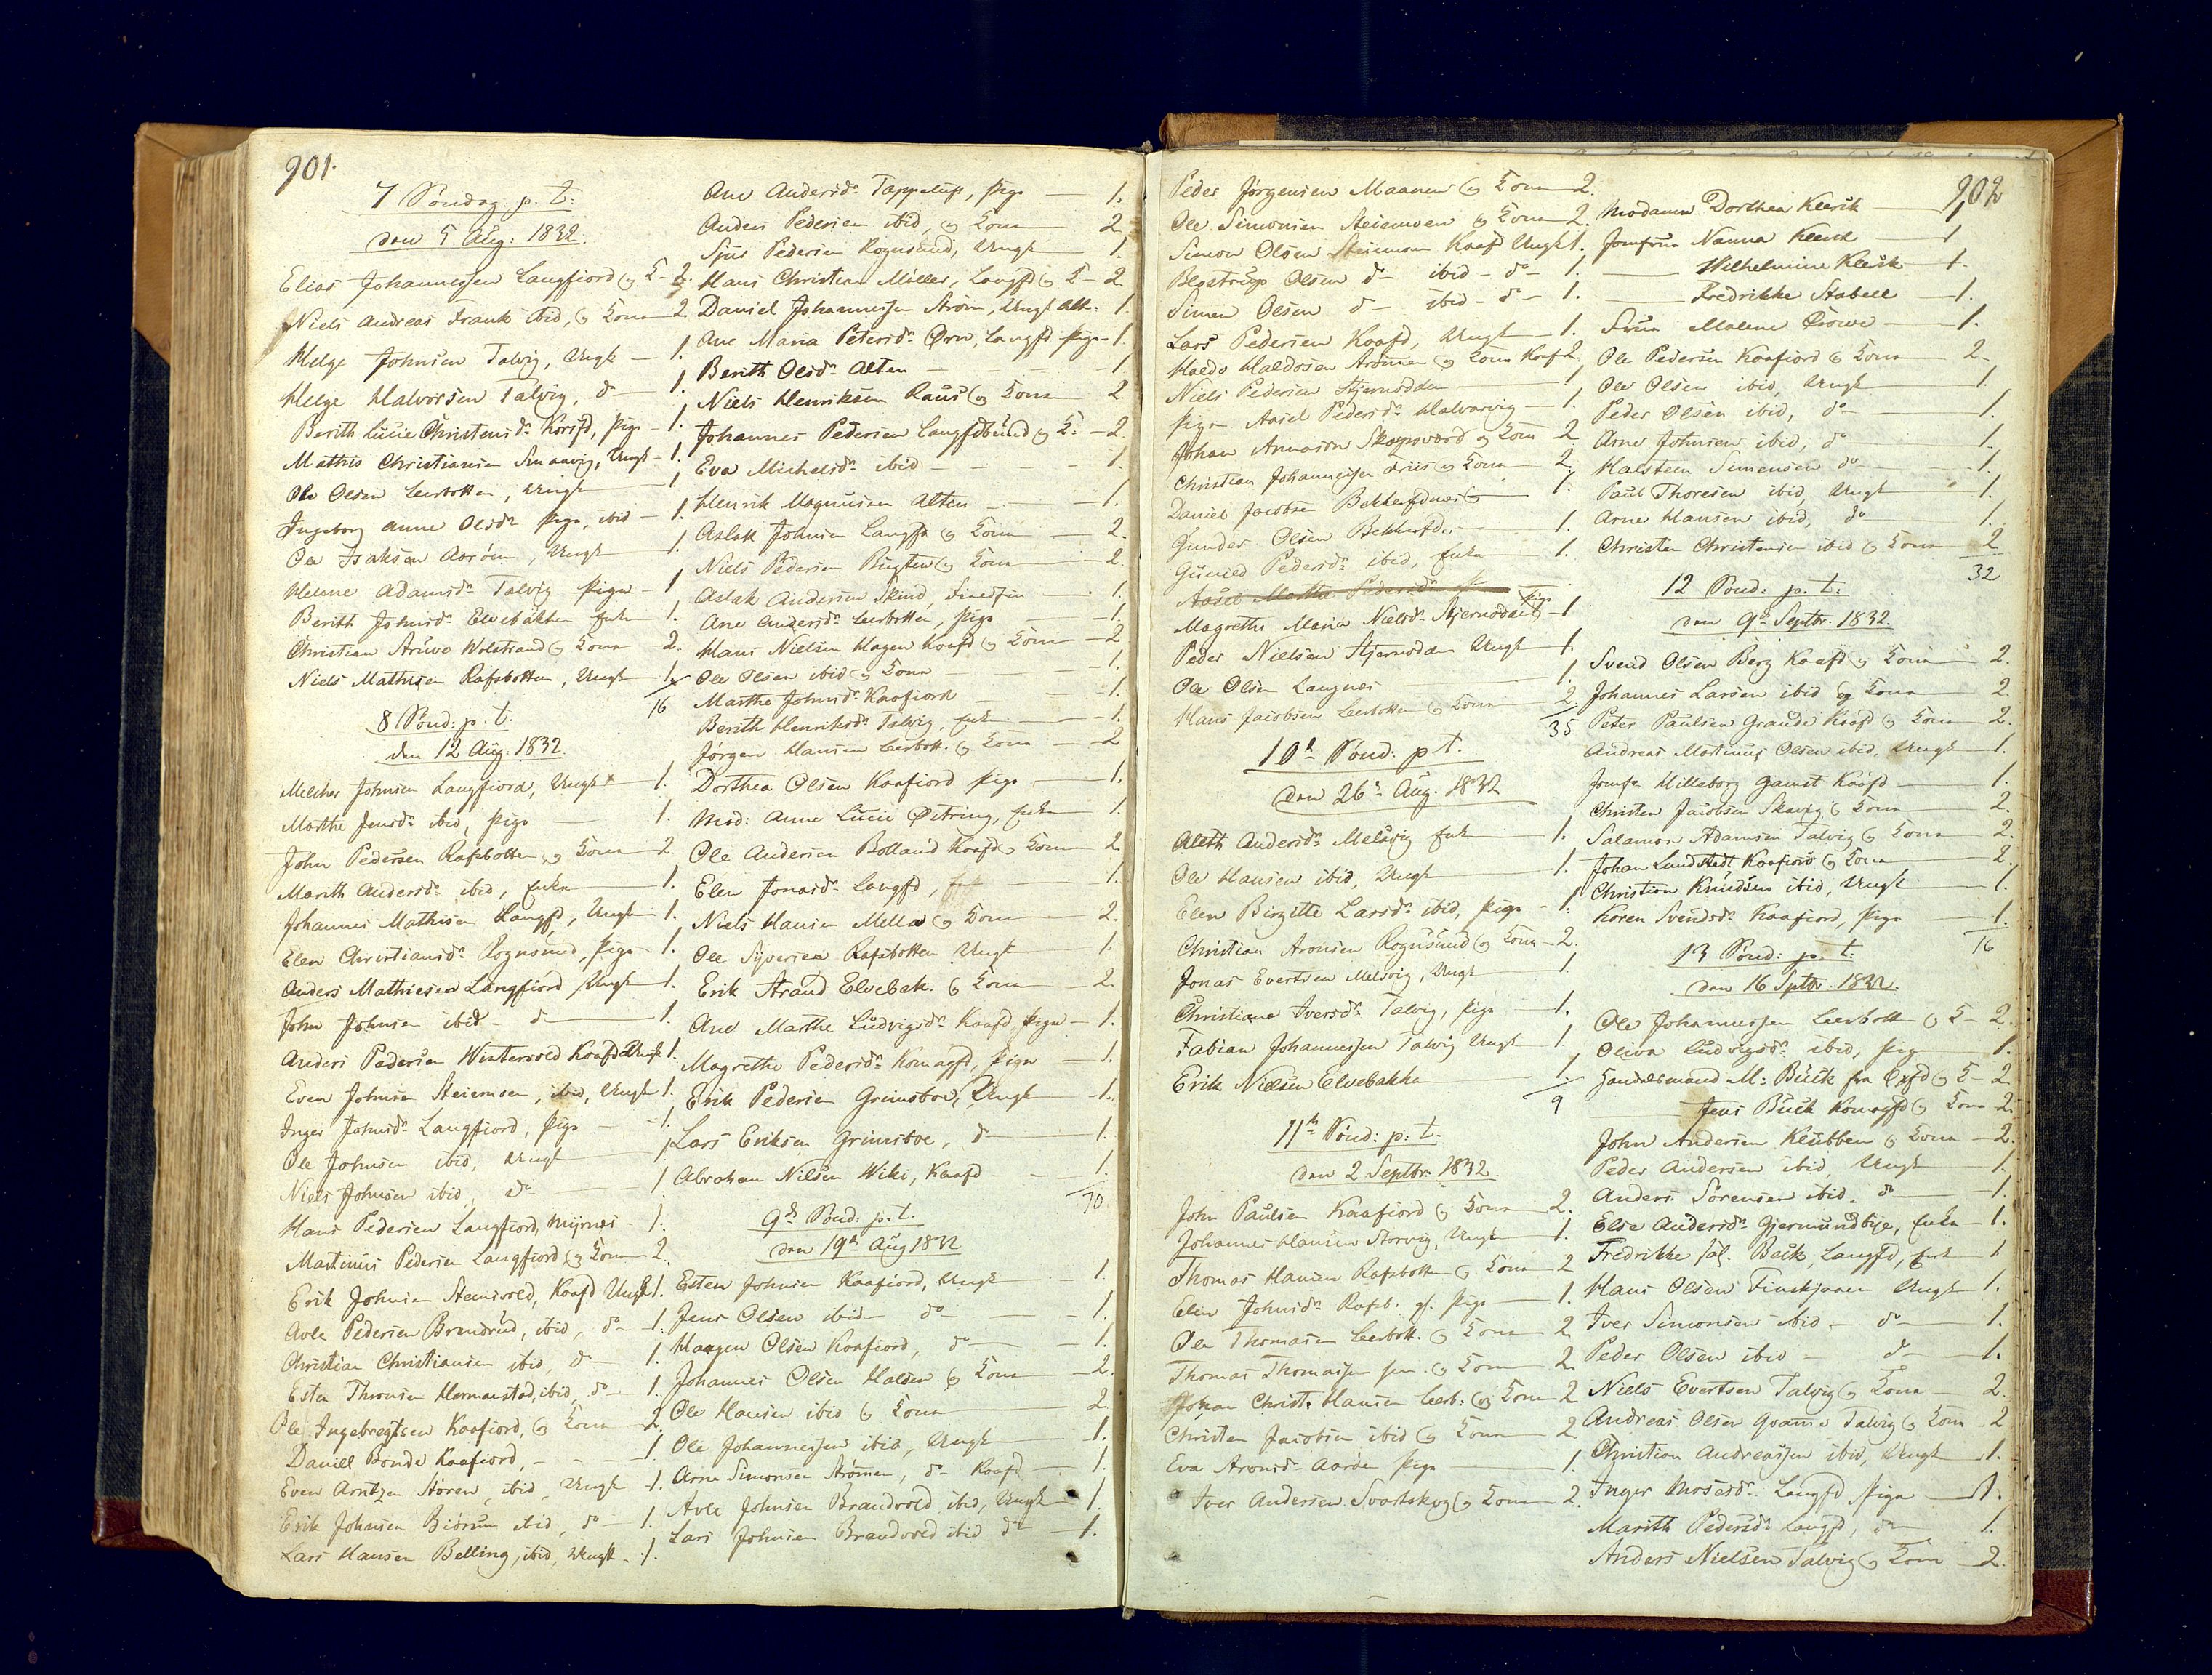 901.
7 Søndag. p. t:
den 5 Aug: 1832.
Elias Johannessen Langfiord og K - 2.
Niels Andreas Frank ibid, og Kona 2.
Helge Johnsen Talvig, Ungk - 1.
Helge Halvorsen Talvig, do - 1.
Berith Lucie Christensdr Korsfd, Pige - 1.
Mathis Christiansen Smaavig, Ungk - 1.
Ole Olsen Leerbotten, Ungk 1
Ingeborg Anne Olsdr Pige, ibid - 1.
Ole Isaksen Aarøen, Ungk 1
Helene Adamsdr Talvig Pige - 1
Berith Johnsdr Elvebakken Enke 1.
Christian Aruwo Wolstrand og Kona 2.
Niels Mathisen Rafsbotten, Ungk 1.
16
8 Sønd: p. t.
den 12 Aug: 1832.
Melcher Johnsen Langfiord, Ungk 1.
Marthe Jensdr ibid, Pige 1.
John Pedersen Rafsbotten og Kona 2.
Marith Andersdr ibid, Enke 1.
Johannes Mathisen Langfd, Ungk 1.
Elen Christiansdr Rognsund, Pige 1.
Anders Mathiesen Langfiord Ungk 1.
John Johnsen ibid - do 1.
Anders Pedersen Wintervold Kaafd Ungk 1.
Even Johnsen Steiemoen, ibid, Ungk 1.
Inger Johnsdr Langfiord, Pige - 1.
Ole Johnsen ibid, Ungk 1
Niels Johnsen ibid, do 1
Hans Pedersen Langfiord, Myrnes - 1.
Martinus Pedersen Langfiord og Kona 2.
Erik Johnsen Stenvold, Kaafd Ungk 1.
Avle Pedersen Brendrud, ibid, do - 1.
Christian Christiansen ibid, do 1.
Esten Thronsen Hermanstad, ibid, do - 1.
Ole Ingebregtsen Kaafiord, og Kona 2.
Daniel Bonde Kaafiord, - - 1
Even Arntzen Støren, ibid, Ungk 1.
Erik Johnsen Biørum ibid, do - 1.
Lars Hansen Belling, ibid, Ungk - 1.
Ane Andersdr Tappeluft, Pige 1.
Anders Pedersen ibid, og Kona 2
Sjur Pedersen Rognsund, Ungk 1.
Hans Christian Møller, Langfd og K - 2.
Daniel Johannessen Strøm, Ungk Alt. 1.
Ane Maria Petersdr Ørn, Langfd Pige - 1.
Berith Olsdr Alten - - - 1
Niels Henriksen Raus og Kona 2.
Johannes Pedersen Langfdbund og K: - 2.
Eva Michelsdr ibid - - 1.
Henrik Magnussen Alten - 1.
Aslak Johnsen Langfd og Kona 2.
Niels Pedersen Bugten og Kona 2.
Aslak Andersen Skind, 1.
Ane Andersdr Leerbotten, Pige - 1.
Hans Nielsen Hagen Kaafd og Kona - 2
Ole Olsen ibid og Kona - 1.
Marthe Johnsdr Kaafiord 1.
Berith Henriksdr Talvig, Enke - 1.
Jørgen Hansen Leerbott. og Kona - 2
Dorthea Olsen Kaafiord Pige 1.
Mad: Anne Lucie Østring, Enke 1.
Ole Andersen Bolland Kaafd og Kona 2.
Elen Jonasdr Langfd, 1.
Niels Hansen Mella og Kona 2.
Ole Syversen Rafsbotten Ungk 1.
Erik Strand Elvebak. og Kona 2.
Ane Marthe Ludvigsdr Kaafd, Pige - 1.
Magrethe Pedersdr Komagfd, Pige - 1.
Erik Pedersen Grimsboe, Ungk - 1.
Lars Eriksen Grimsboe, do 1.
Abraham Nilsen Wiki, Kaafd 1.
70
9d Sønd. p. t.
den 19d Aug 1832
Esten Johnsen Kaafiord, Ungk 1.
Jens Olsen ibid - do - 1.
Haagen Olsen Kaafiord, do - 1.
Johannes Olsen Halsen og Kona - 2.
Ole Hansen ibid og Kona 2
Ole Johannessen ibid, Ungk 1.
Arne Simonsen Strømmen, do - Kaafd 1.
Avle Johnsen Brandvold ibid, Ungk - 1.
Lars Johnsen Brandvold ibid do - 1.
902
Peder Jørgensen Maanen og Kona 2.
Ole Simonsen Steiemoen og Kona 2.
Simon Olsen Steiemoen Kaafd Ungk 1.
Begstrup Olsen do - ibid - do - 1.
Simen Olsen do - ibid - do - 1.
Lars Pedersen Kaafd, Ungk 1.
Haldo Haldosen Aronnes og Kona Kaafd 2.
Niels Pedersen Stjernodden 1
Pige Aasel Pedersdr Halvarvig - 1.
Johan Arnason Skogsvard og Kona 2
Christian Johannessen Friis og Kona 2.
Daniel Jacobsen Bekkerfdnes og 1.
Gunder Olsen Bekkerfd. - 1.
Guniled Pedersdr ibid, Enke 1.
Aasel Marthe Pedersdr
Magrethe Maria Nielsdr Stjernodden Pige - 1
Peder Nielsen Stjernodden Ungk 1.
Ole Olsen Langnes 1.
Hans Jacobsen Leerbotten og Kona 2
35
10d Sønd. p t.
den 26d Aug. 1832
Aleth Andersdr Melsvig Enke 1.
Ole Hansen ibid, Ungk 1.
Elen Birgitte Larsdr ibid, Pige - 1.
Christian Aronsen Rognsund og Kona - 2.
Jonas Evertsen Melsvig, Ungk 1.
Christiane Iversdr Talvig, Pige 1.
Fabian Johannessen Talvig Ungk 1.
Erik Nielsen Elvebakken 1.
9
11te Sønd: p. t.
den 2 Septbr. 1832
John Paulsen Kaafiord og Kona 2.
Johannes Hansen Storvig, Ungk 1.
Thomas Hansen Rafsbotten og Kona 2
Elen Johnsdr Rafsb. gl. Pige - 1.
Ole Thomasen Leerbott. og Kona 2
Thomas Thomassen sen. og Kona 2.
Johan Christ. Hansen Leerb. og Kona 2
Christen Jacobsen ibid og Kona 2.
Eva Aronsdr Aarøe Pige 1.
Iver Andersen Svartskog og Kona 2.
Madame Dorthea Klerk 1
Jomfrue Nanna Klerk 1
— Wilhelmine Klerk 1.
— Fredrikke Stabell 1.
Frue Malene Crowe - 1.
Ole Pedersen Kaafiord og Kona 2.
Ole Olsen ibid, Ungk 1.
Peder Olsen ibid, do 1.
Arne Johnsen ibid, do 1.
Halsteen Simensen do 1.
Paul Thoresen ibid, Ungk 1.
Arne Hansen ibid, do 1.
Christen Christensen ibid og Kona 2
32
12 Sønd: p. t:
den 9d Septbr. 1832.
Svend Olsen Berg Kaafd og Kona 2.
Johannes Larsen ibid og Kona 2.
Peter Paulsen Grande Kaafd og Kona 2.
Andreas Martinus Olsen ibid. Ungk 1.
Jomfr Hilleborg Gamst Kaafd 1.
Christen Jacobsen Skavig og Kona 2.
Salamon Adamsen Talvig og Kona 2.
Johan Lundstedt Kaafiord og Kona 2.
Christian Knudsen ibid, Ungk 1.
Karen Svendsdr Kaafiord, Pige 1.
16
13 Sønd: p. t:
den 16 Septbr. 1832.
Ole Johannessen Leerbott og K - 2.
Oliva Ludvigsdr ibid, Pige 1.
Handelsmand M: Buck fra Øxfd og K - 2
— Jens Buck Komagfd og Kona 2.
John Andersen Klubben og Kona - 2.
Peder Andersen ibid, Ungk 1.
Anders Sørensen ibid. do 1.
Else Andersdr Gjermundbye, Enke - 1.
Fredrikke sal. Beck, Langfd, Enk 1
Hans Olsen Finskjaaen Ungk 1.
Iver Simonsen ibid - do 1.
Peder Olsen ibid - do 1.
Niels Evertsen Talvig og Kona 2.
Andreas Olsen Qvame Talvig og Kona 2
Christian Andreassen ibid, Ungk 1.
Inger Mosesdr Langfd Pige 1.
Marith Pedersdr Langfd, do 1.
Anders Nielsen Talvig og Kona 2.